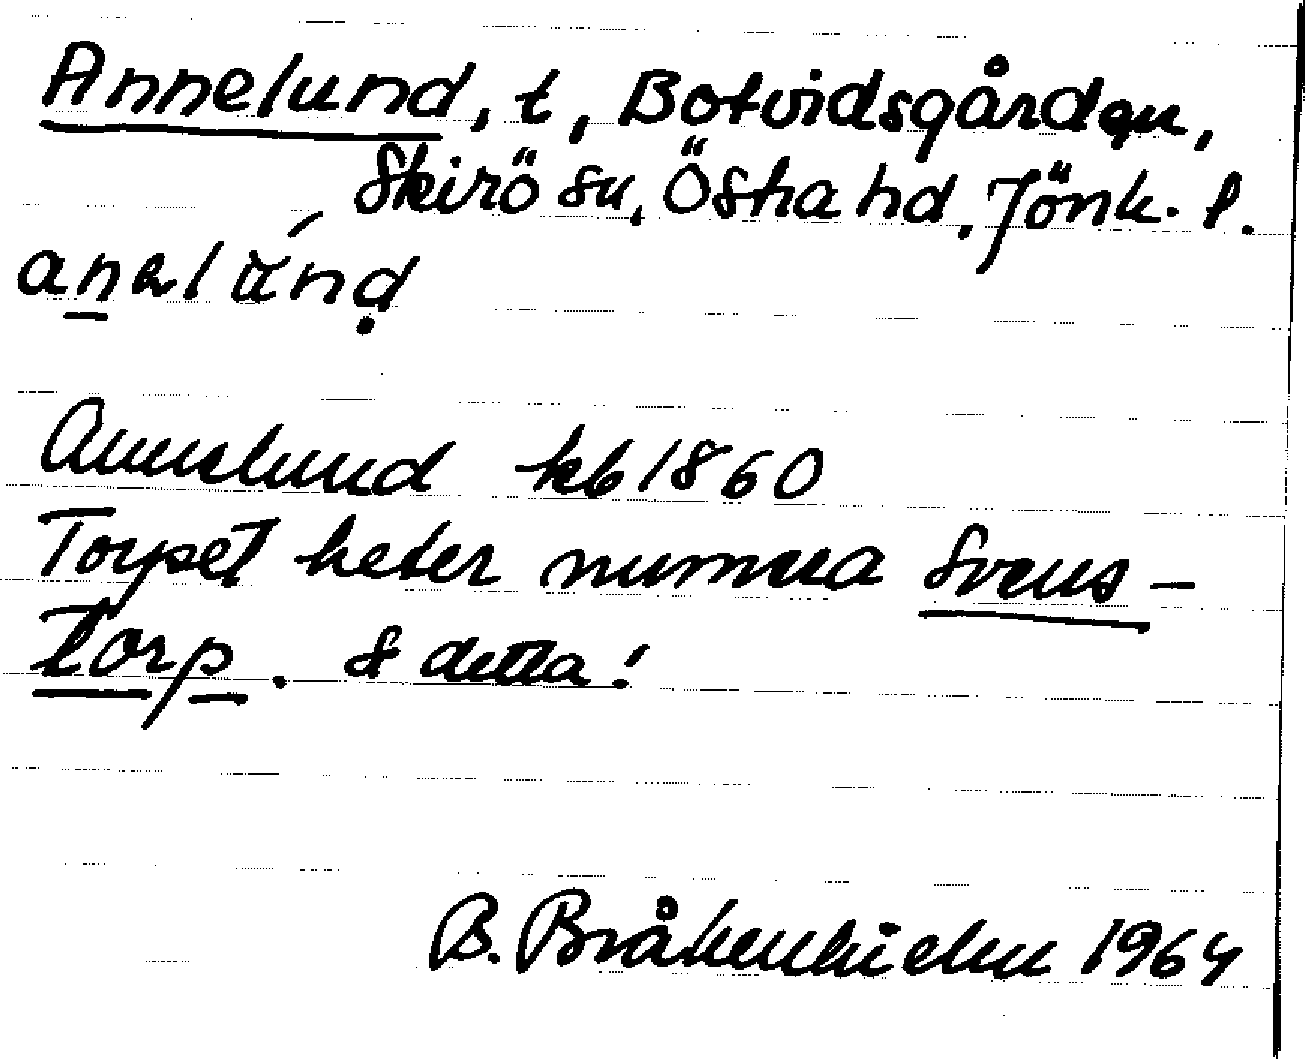 Annelund, t, Botvidsgården,
Skirö sn, Östra hd, Jönk. l.
anəlund
Annelund kb 1860
Torpet heter numera Svens-
torp. Se detta!
B. Bråkenhielm 1964